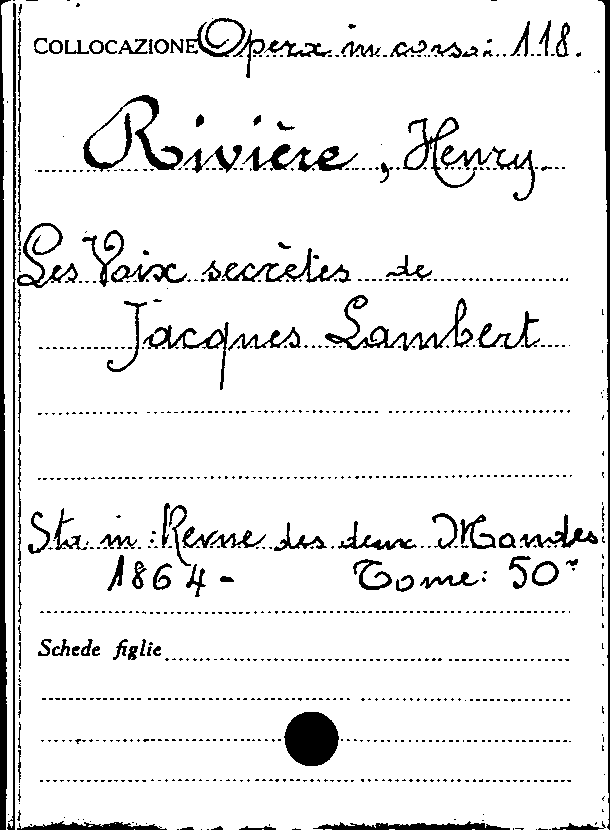 COLLOCAZIONE Opera in corso: 118.
Rivière, Henry.
Les Voix secrètes de
Jacques Lambert
Sta in: Revue des deux Mondes
1864- Tome: 50°
Schede figlie